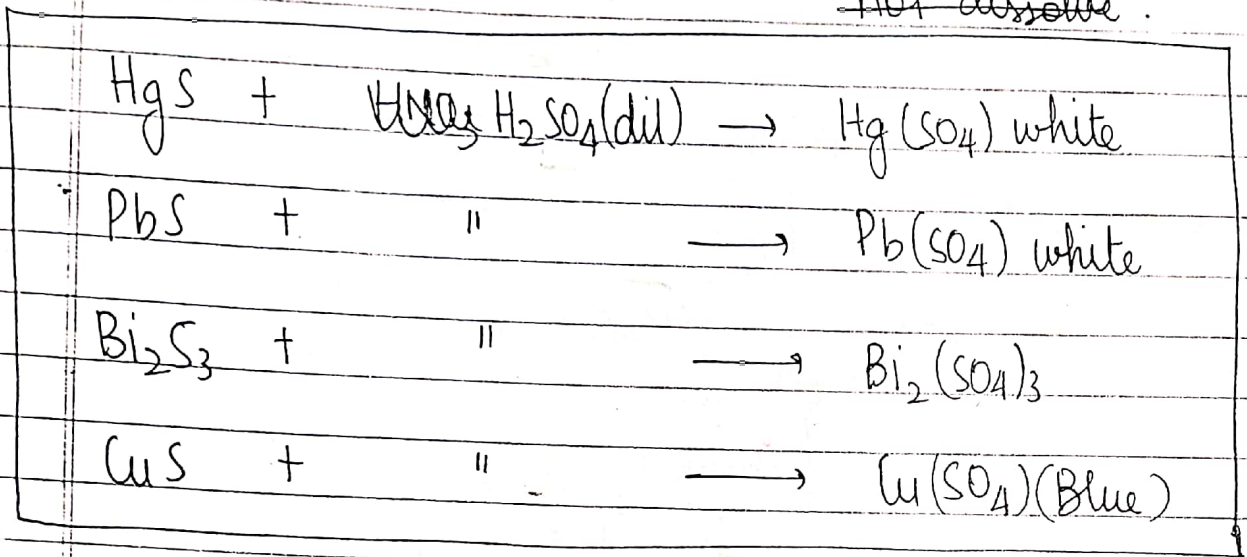 not dissolve.
HgS + HNO3 H2SO4(dil) → Hg(SO4) white
PbS + " → Pb(SO4) white
Bi2S3 + " → Bi2(SO4)3
CuS + " → Cu(SO4)(Blue)